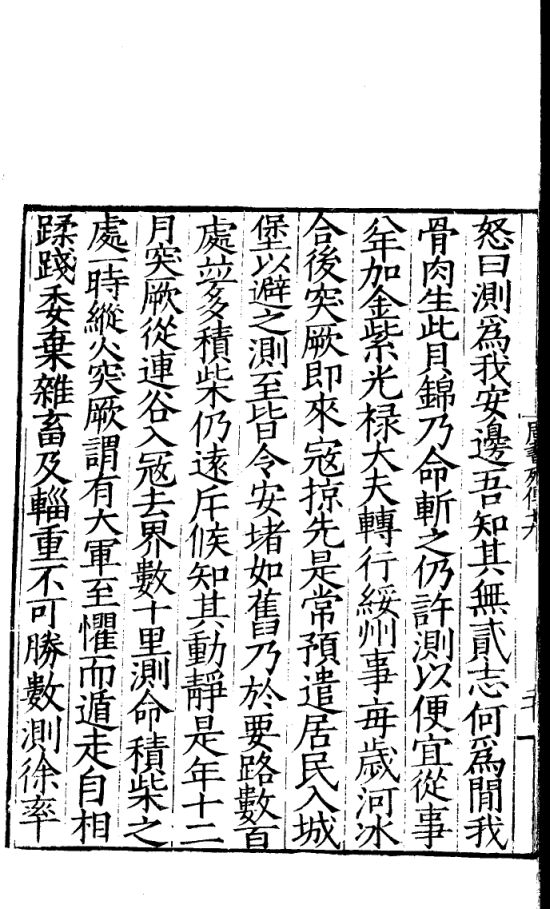 怒曰測爲我安邊吾知其無貳志何爲間我
骨肉生此貝錦乃命斬之仍許測以便宜從事
八年加金紫光禄大夫轉行綏州事每歲河冰
合後突厥即來寇掠先是常預遣居民入城
堡以避之測至皆令安堵如舊乃於要路數百
處並多積柴仍遠斥候知其動靜是年十二
月突厥從連谷入寇去界數十里測命積柴之
處一時縱火突厥謂有大軍至懼而遁走自相
蹂踐委棄雜畜及輜重不可勝數測徐率